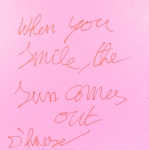 When you
smile, the
Sun comes
out